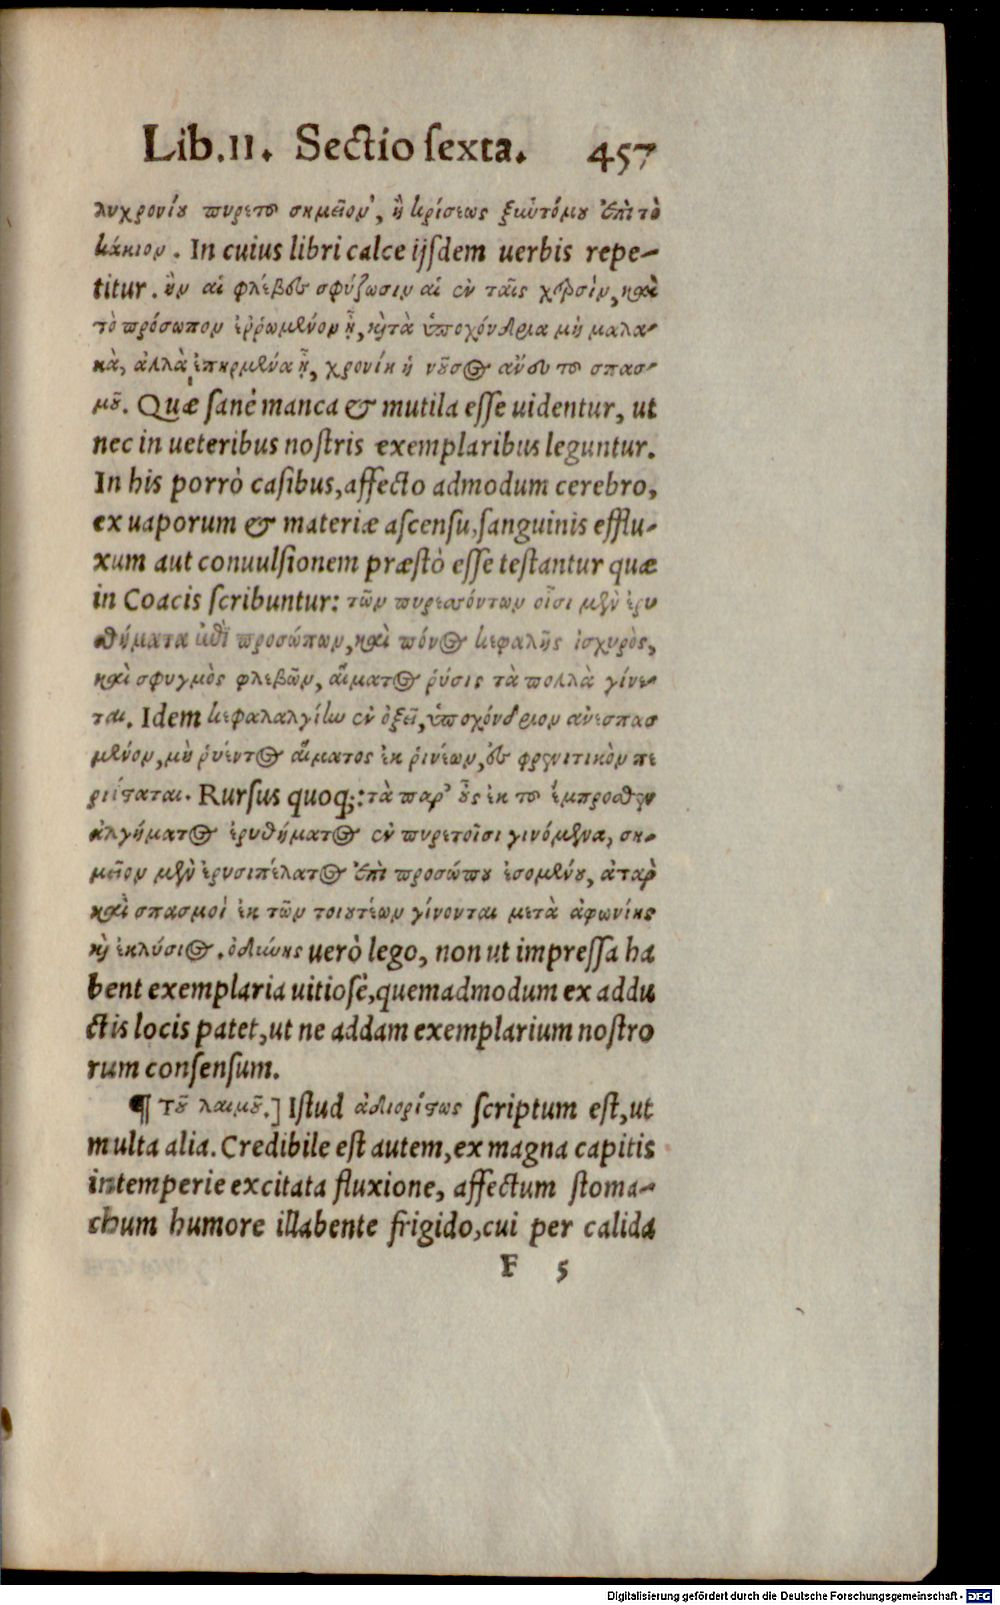 Lib.II. Sectio sexta. 457
λυχρονίου πυρετοῦ σημεῖον, ἢ κρίσεως ξωτόμου ἐπὶ τὸ
κάκιον. In cuius libri calce ijsdem uerbis repe-
titur. ἢν αἱ φλέβες σφύζωσιν αἱ ἐν ταῖς χερσὶν, καὶ
τὸ πρόσωπον ἐῤῥωμένον ᾖ, κỳ τὰ ὑποχόνδρια μὴ μαλα-
κὰ, ἀλλὰ ἐπηρμένα ᾖ, χρονίη ἡ νοῦσος ἄνευ τοῦ σπασ-
μοῦ. Quæ sanè manca & mutila esse uidentur, ut
nec in ueteribus nostris exemplaribus leguntur.
In his porrò casibus, affecto admodum cerebro,
ex uaporum & materiæ ascensu, sanguinis efflu-
xum aut conuulsionem præstò esse testantur quæ
in Coacis scribuntur: τῶν πυρεσσόντων οἷσι μὲν ἐρυ
θήματα ἐπὶ προσώπων, καὶ πόνος κεφαλῆς ἰσχυρὸς,
καὶ σφυγμὸς φλεβῶν, αἵματος ῥύσις τὰ πολλὰ γίνε-
ται. Idem κεφαλαλγίην ἐν ὀξεῖ, ὑποχόνδριον ἀνεσπασ
μένον, μὴ ῥυέντος αἵματος ἐκ ῥινέων, ἐς φρενιτικὸν πε
ριίσταται. Rursus quoq;: τὰ παρ' οὖς ἐκ τοῦ ἔμπροσθεν
ἀλγήματος ἐρυθήματος ἐν πυρετοῖσι γινόμενα, ση-
μεῖον μὲν ἐρυσιπέλατος ἐπὶ προσώπου ἐσομένου, ἀτὰρ
καὶ σπασμοὶ ἐκ τῶν τοιουτέων γίνονται μετὰ ἀφωνίης
κỳ ἐκλύσιος. ὀδιώης uerò lego, non ut impressa ha
bent exemplaria uitiosè, quemadmodum ex addu
ctis locis patet, ut ne addam exemplarium nostro
rum consensum.
¶ Τοῦ λαιμοῦ.] Istud ἀδιορίστως scriptum est, ut
multa alia. Credibile est autem, ex magna capitis
intemperie excitata fluxione, affectum stoma-
chum humore illabente frigido, cui per calida
F 5
Digitalisierung gefördert durch die Deutsche Forschungsgemeinschaft - DFG